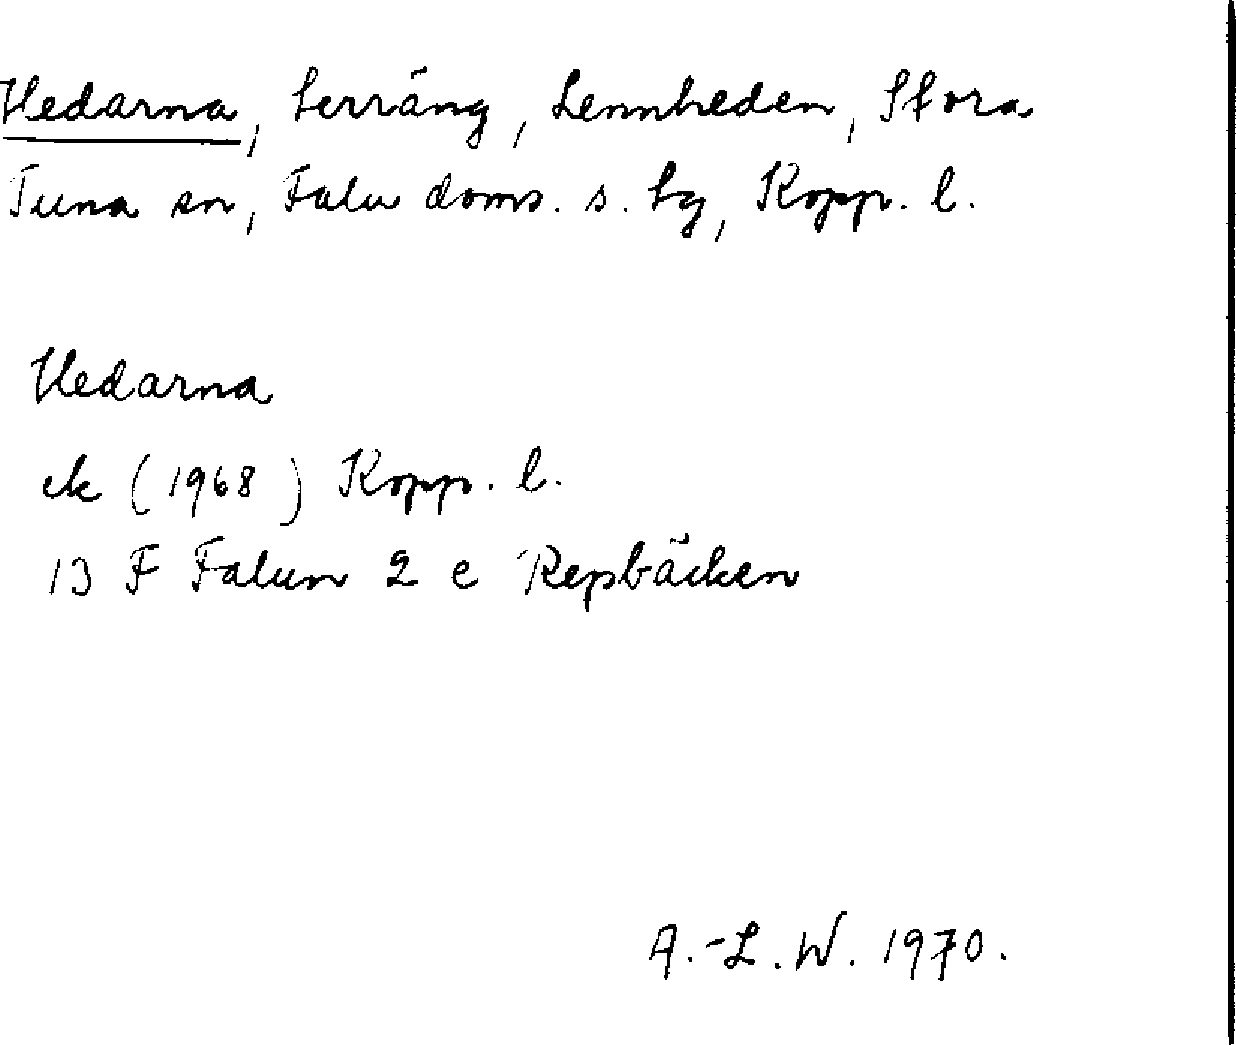 Hedarna, terräng, Lennheden, Stora
Tuna sn, Falu doms. s. tg, Kopp. l.
Hedarna
ek (1968) Kopp. l.
13 F Falun 2 e Repbäcken
A.-L. W. 1970.